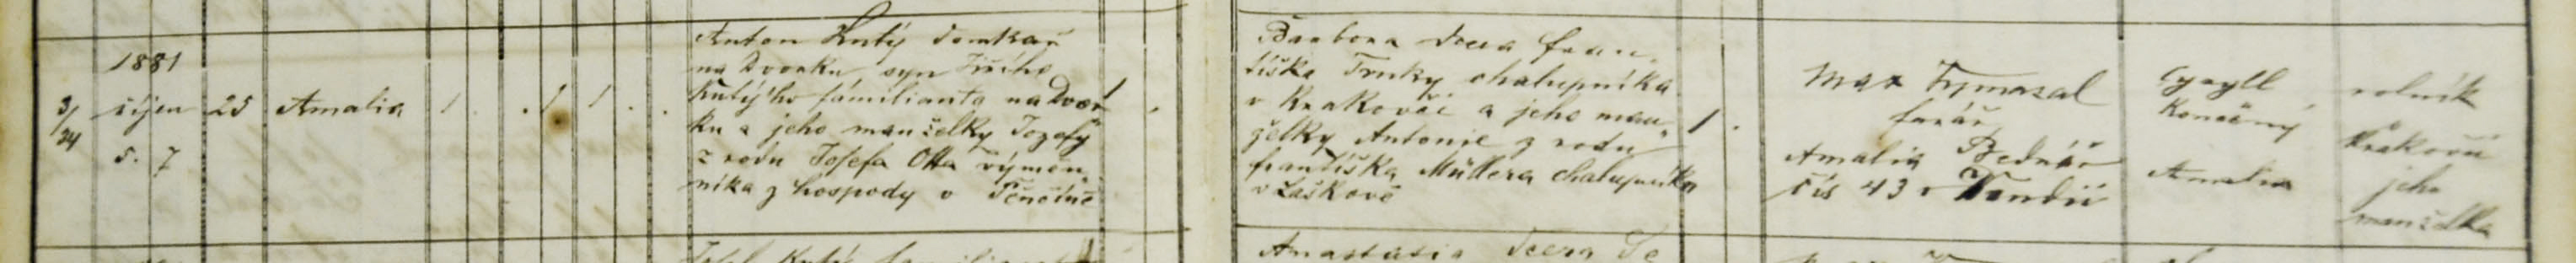 1881
3/24 říjen 25 Amalia 1 . . 1 1 . .
5. 7
Anton Kutý domkař
na Dvorku, syn Jiřího
Kutýho familianta na Dvor
ku a jeho manželky Jozefy
z rodu Josefa Otta výměn„
níka z hospody v Pěnčíně
1 .
Barbora dcera Fran„
tiška Trnky, chalupníka
v Krakovči a jeho man„
želky Antonie z rodu
Františka Müllera chalupníka
v Laškově
1 .
Max Vymazal
farář
Amalia Bednář
čís 43 v Kandii
Cyryll
Konečný
Amalia
rolník
Krakovci
jeho
manželka
Josef Kutý familiant
Anastasia dcera Se